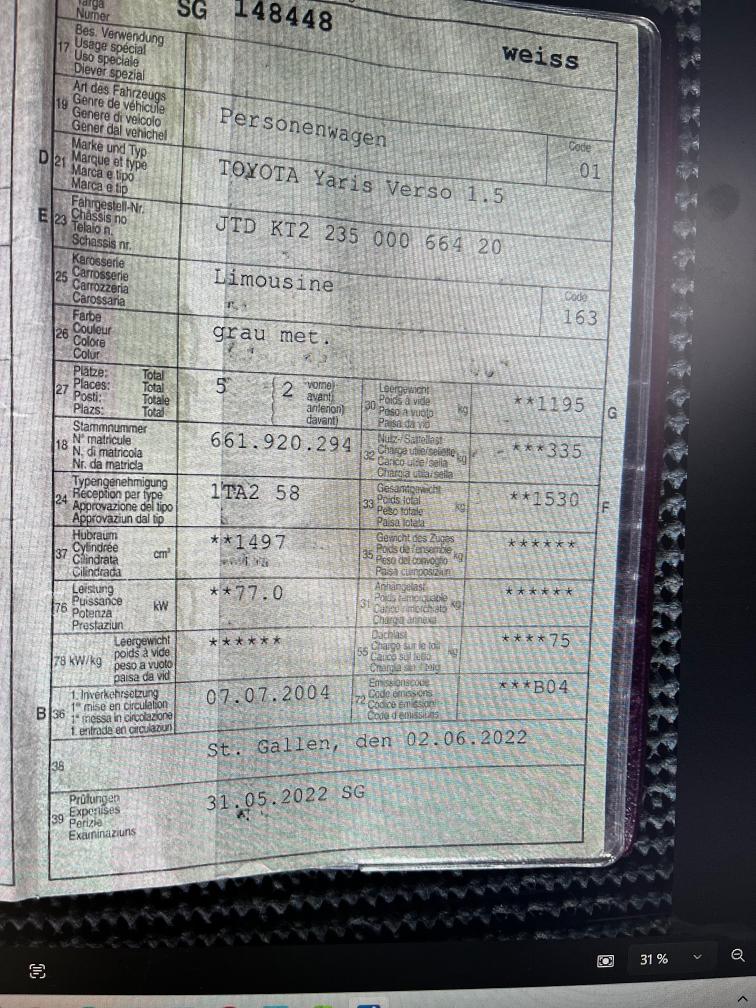 Targa
Numer
SG 148448
weiss
17
Bes. Verwendung
Usage spécial
Uso speciale
Diever spezial
19
Art des Fahrzeugs
Genre de véhicule
Genere di veicolo
Gener dal vehichel
Personenwagen
Code
01
D 21
Marke und Typ
Marque et type
Marca e tipo
Marca e tip
TOYOTA Yaris Verso 1.5
E 23
Fahrgestell-Nr.
Châssis no
Telaio n.
Schassis nr.
JTD KT2 235 000 664 20
25
Karosserie
Carrosserie
Carrozzeria
Carossaria
Limousine
Code
163
26
Farbe
Couleur
Colore
Colur
grau met.
27
Plätze: Total
Places: Total
Posti: Totale
Plazs: Total
5
2
vorne)
avant)
anteriori)
davant)
30
Leergewicht
Poids à vide
Peso a vuoto
Paisa da vid
kg
**1195
G
18
Stammnummer
N° matricule
N. di matricola
Nr. da matricla
661.920.294
32
Nutz-/Sattellast
Charge utile/sellette
Carico utile/sella
Chargia utila/sella
kg
***335
24
Typengenehmigung
Réception par type
Approvazione del tipo
Approvaziun dal tip
1TA2 58
33
Gesamtgewicht
Poids total
Peso totale
Paisa totala
kg
**1530
F
37
Hubraum
Cylindrée
Cilindrata
Cilindrada
cm³
**1497
35
Gewicht des Zuges
Poids de l'ensemble
Peso del convoglio
Paisa cumposiziun
kg
******
76
Leistung
Puissance
Potenza
Prestaziun
kW
**77.0
31
Anhängelast
Poids remorquable
Carico rimorchiato
Chargia annexa
kg
******
78 kW/kg
Leergewicht
poids à vide
peso a vuoto
paisa da vid
******
55
Dachlast
Charge sur le toit
Carico sul tetto
kg
****75
B 36
1. Inverkehrsetzung
1re mise en circulation
1a messa in circolazione
1. entrada en circulaziun
07.07.2004
72
Emissionscode
Code émissions
Codice emissioni
Code d'emissiuns
***B04
38
St. Gallen, den 02.06.2022
39
Prüfungen
Expertises
Perizie
Examinaziuns
31.05.2022 SG
31 %